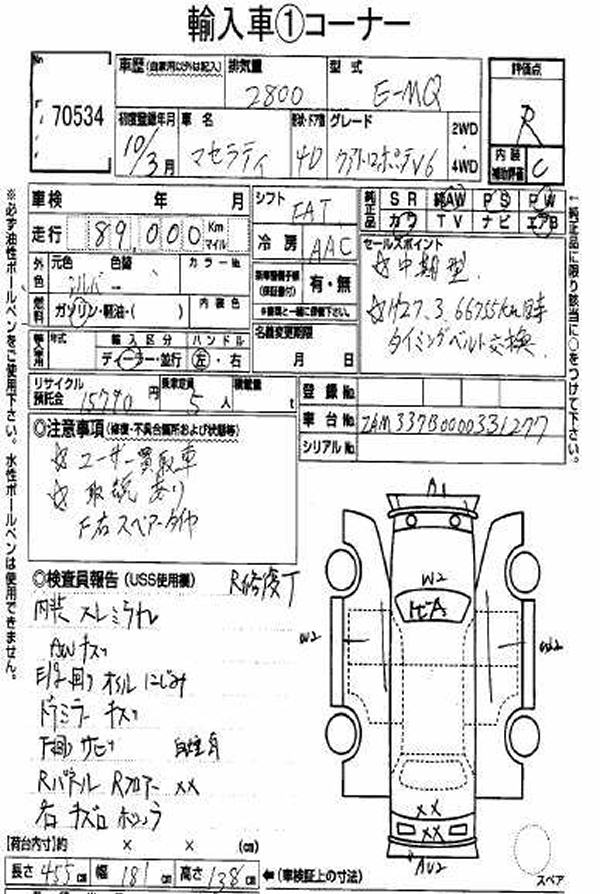 輸入車①コーナー
No. 70534
車歴 (自家用以外は記入)
排気量 2800
型式 E-MQ
評価点 R
初度登録年月 10/3月
車名 マセラティ
形状・ドア数 4D
グレード クアトロポルテV6
2WD・4WD
内装補助評価 C
車検 年 月
走行 89,000 Km マイル
シフト FAT
冷房 AAC
純正品 SR 純AW PS PW
カワ TV ナビ エアB
外色 元色 シルバー 色替 カラーNo.
燃料 ガソリン・軽油・( ) 内装色
有・無
名義変更期限 月 日
セールスポイント
☆中期型.
☆H27.3. 66755Km時
タイミングベルト交換.
輸入車用 年式 輸入区分 ハンドル
ディーラー・並行 左・右
リサイクル預託金 15790円
乗車定員 5人
積載量 t
登録No.
車台No. ZAM337B0000331277
シリアルNo.
◎注意事項 (修復・不具合箇所および状態等)
☆ユーザー買取車
☆取説あり
F右スペアータイヤ
◎検査員報告 (USS使用欄)
R修復丁
内装 スレミワレ
AWキズ
E/P回り オイルにじみ
ドアミラー キズ
下回り サビ
Rパネル Rフロアー XX
A1
W2
ヒビA
W2
XX
XX
AU2
スペア
[荷台内寸]約 × × (cm)
長さ 455cm 幅 181cm 高さ 138cm ←(車検証上の寸法)
※必ず油性ボールペンをご使用下さい。水性ボールペンは使用できません。
↑純正品に限り該当に○をつけて下さい。